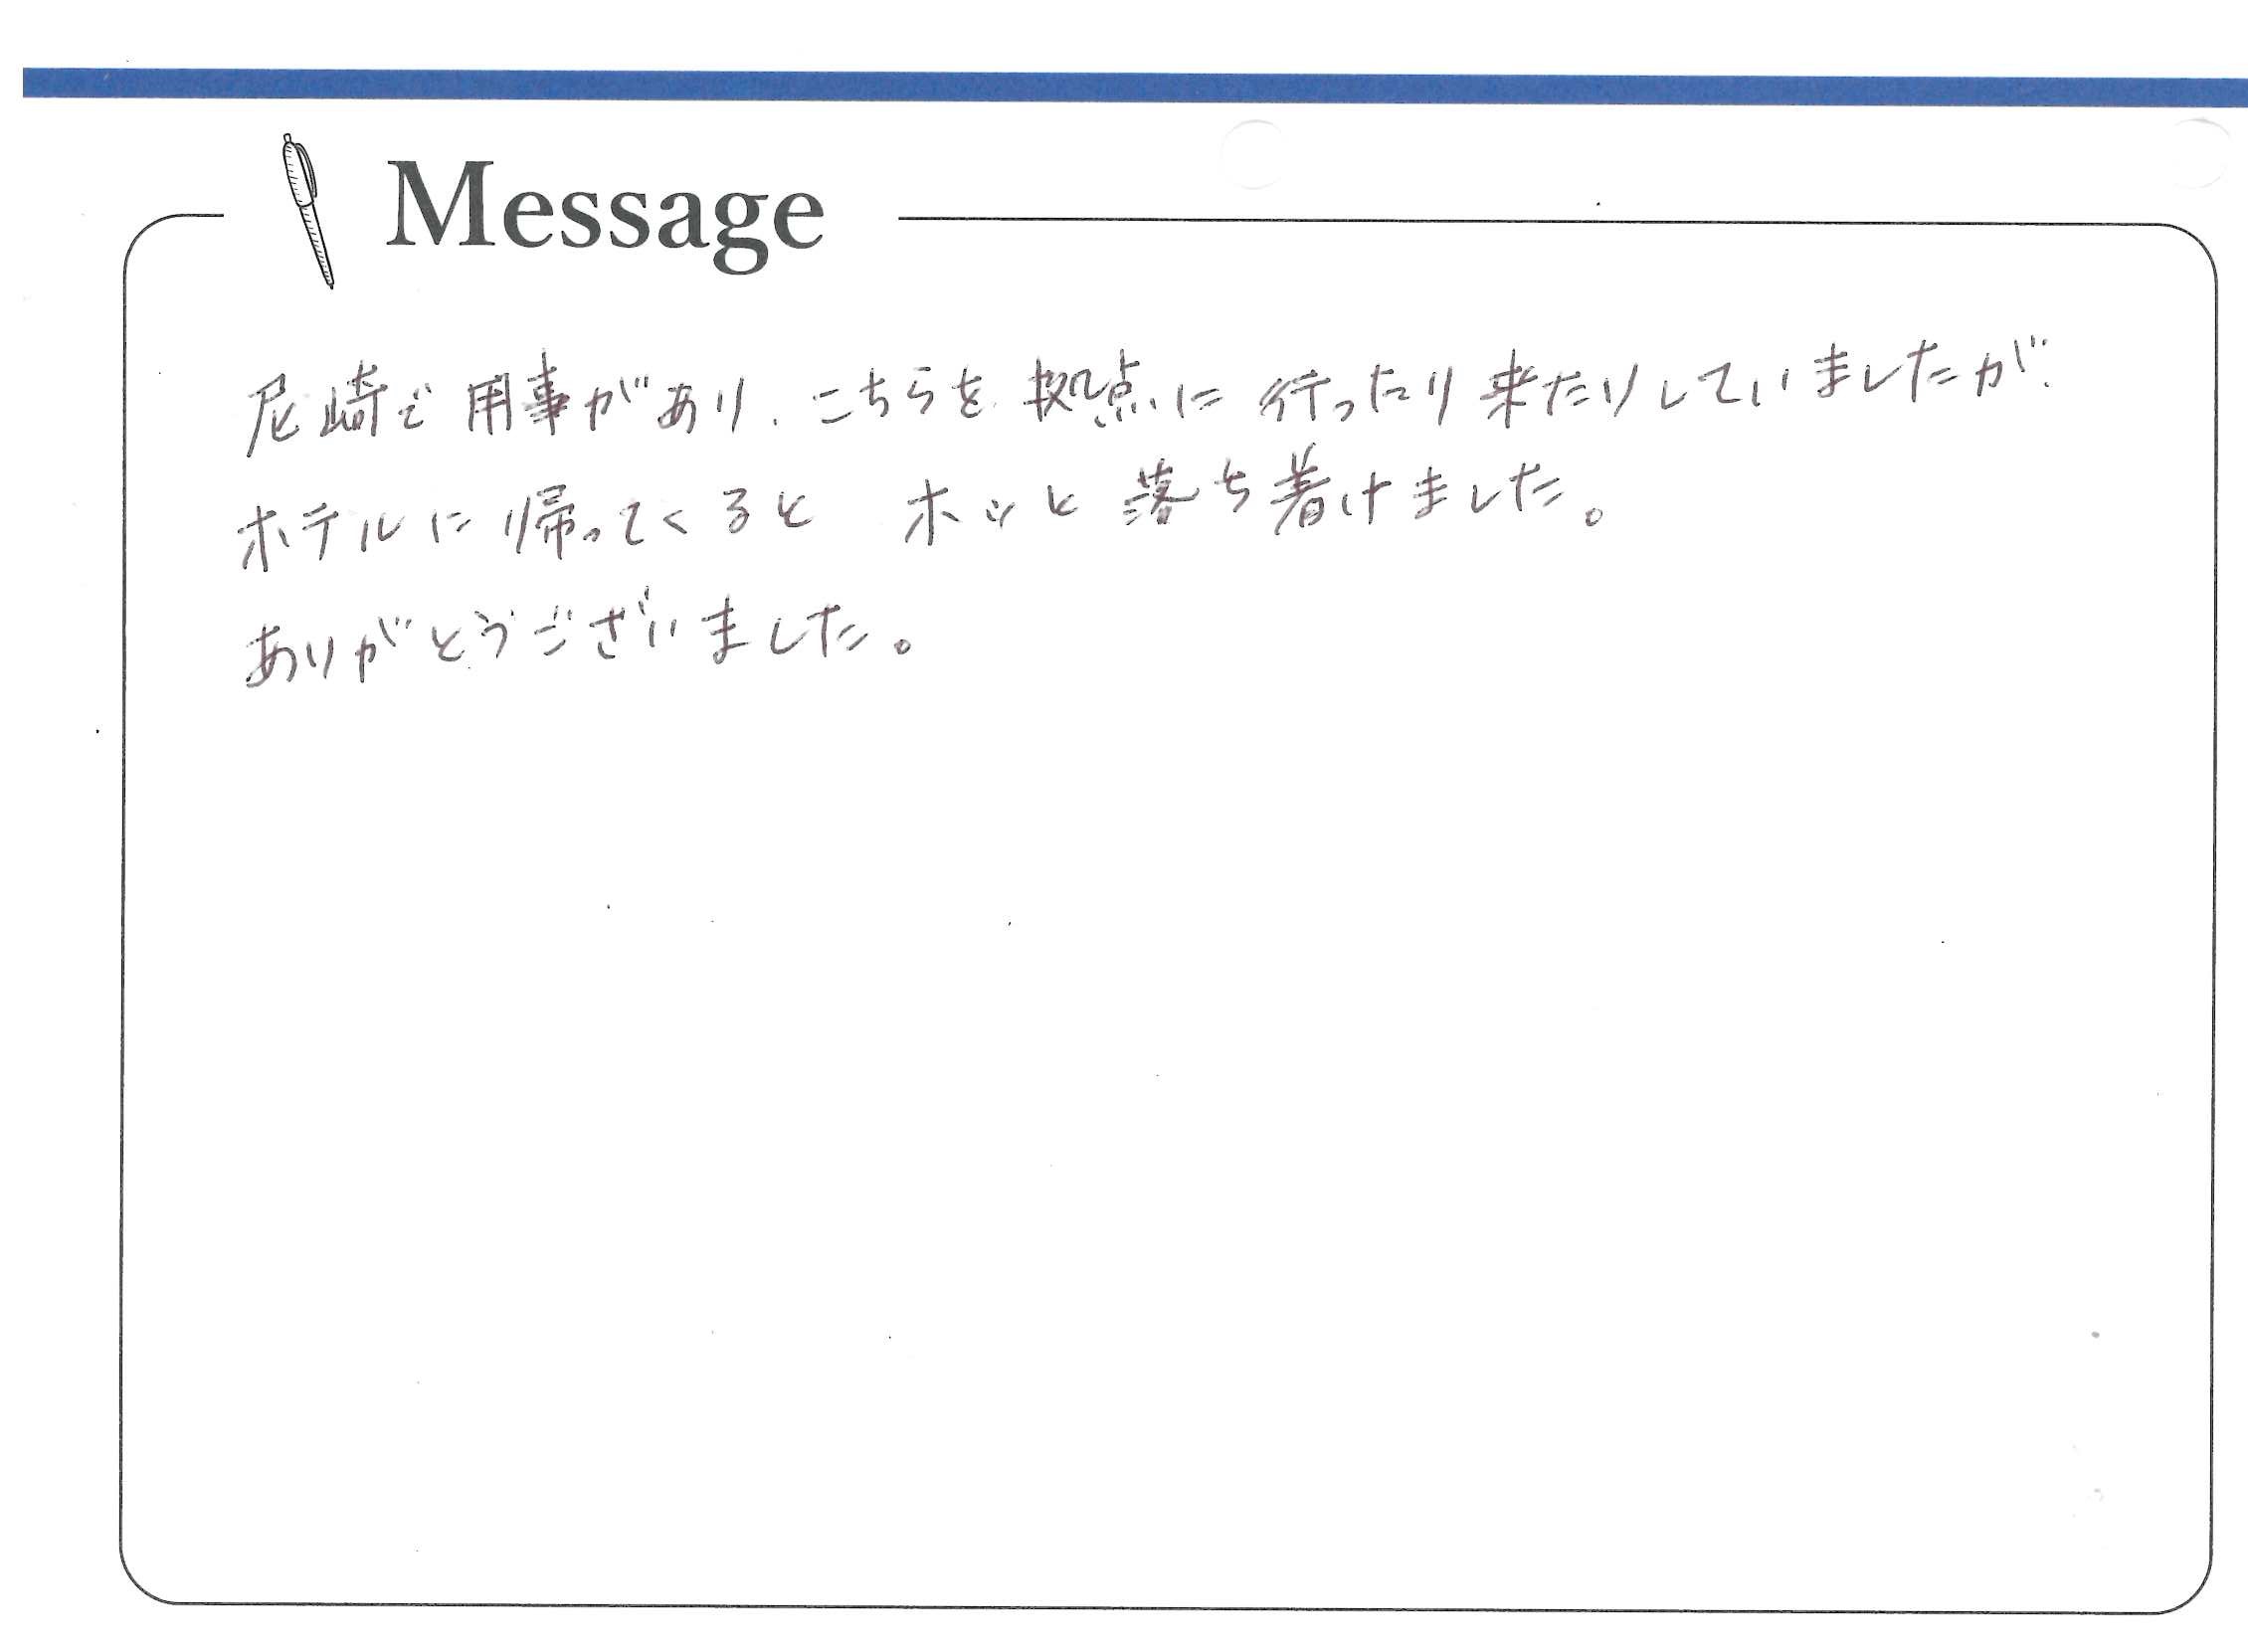 Message
尼崎で用事があり、こちらを拠点に行ったり来たりしていましたが、
ホテルに帰ってくると ホッと落ち着けました。
ありがとうございました。